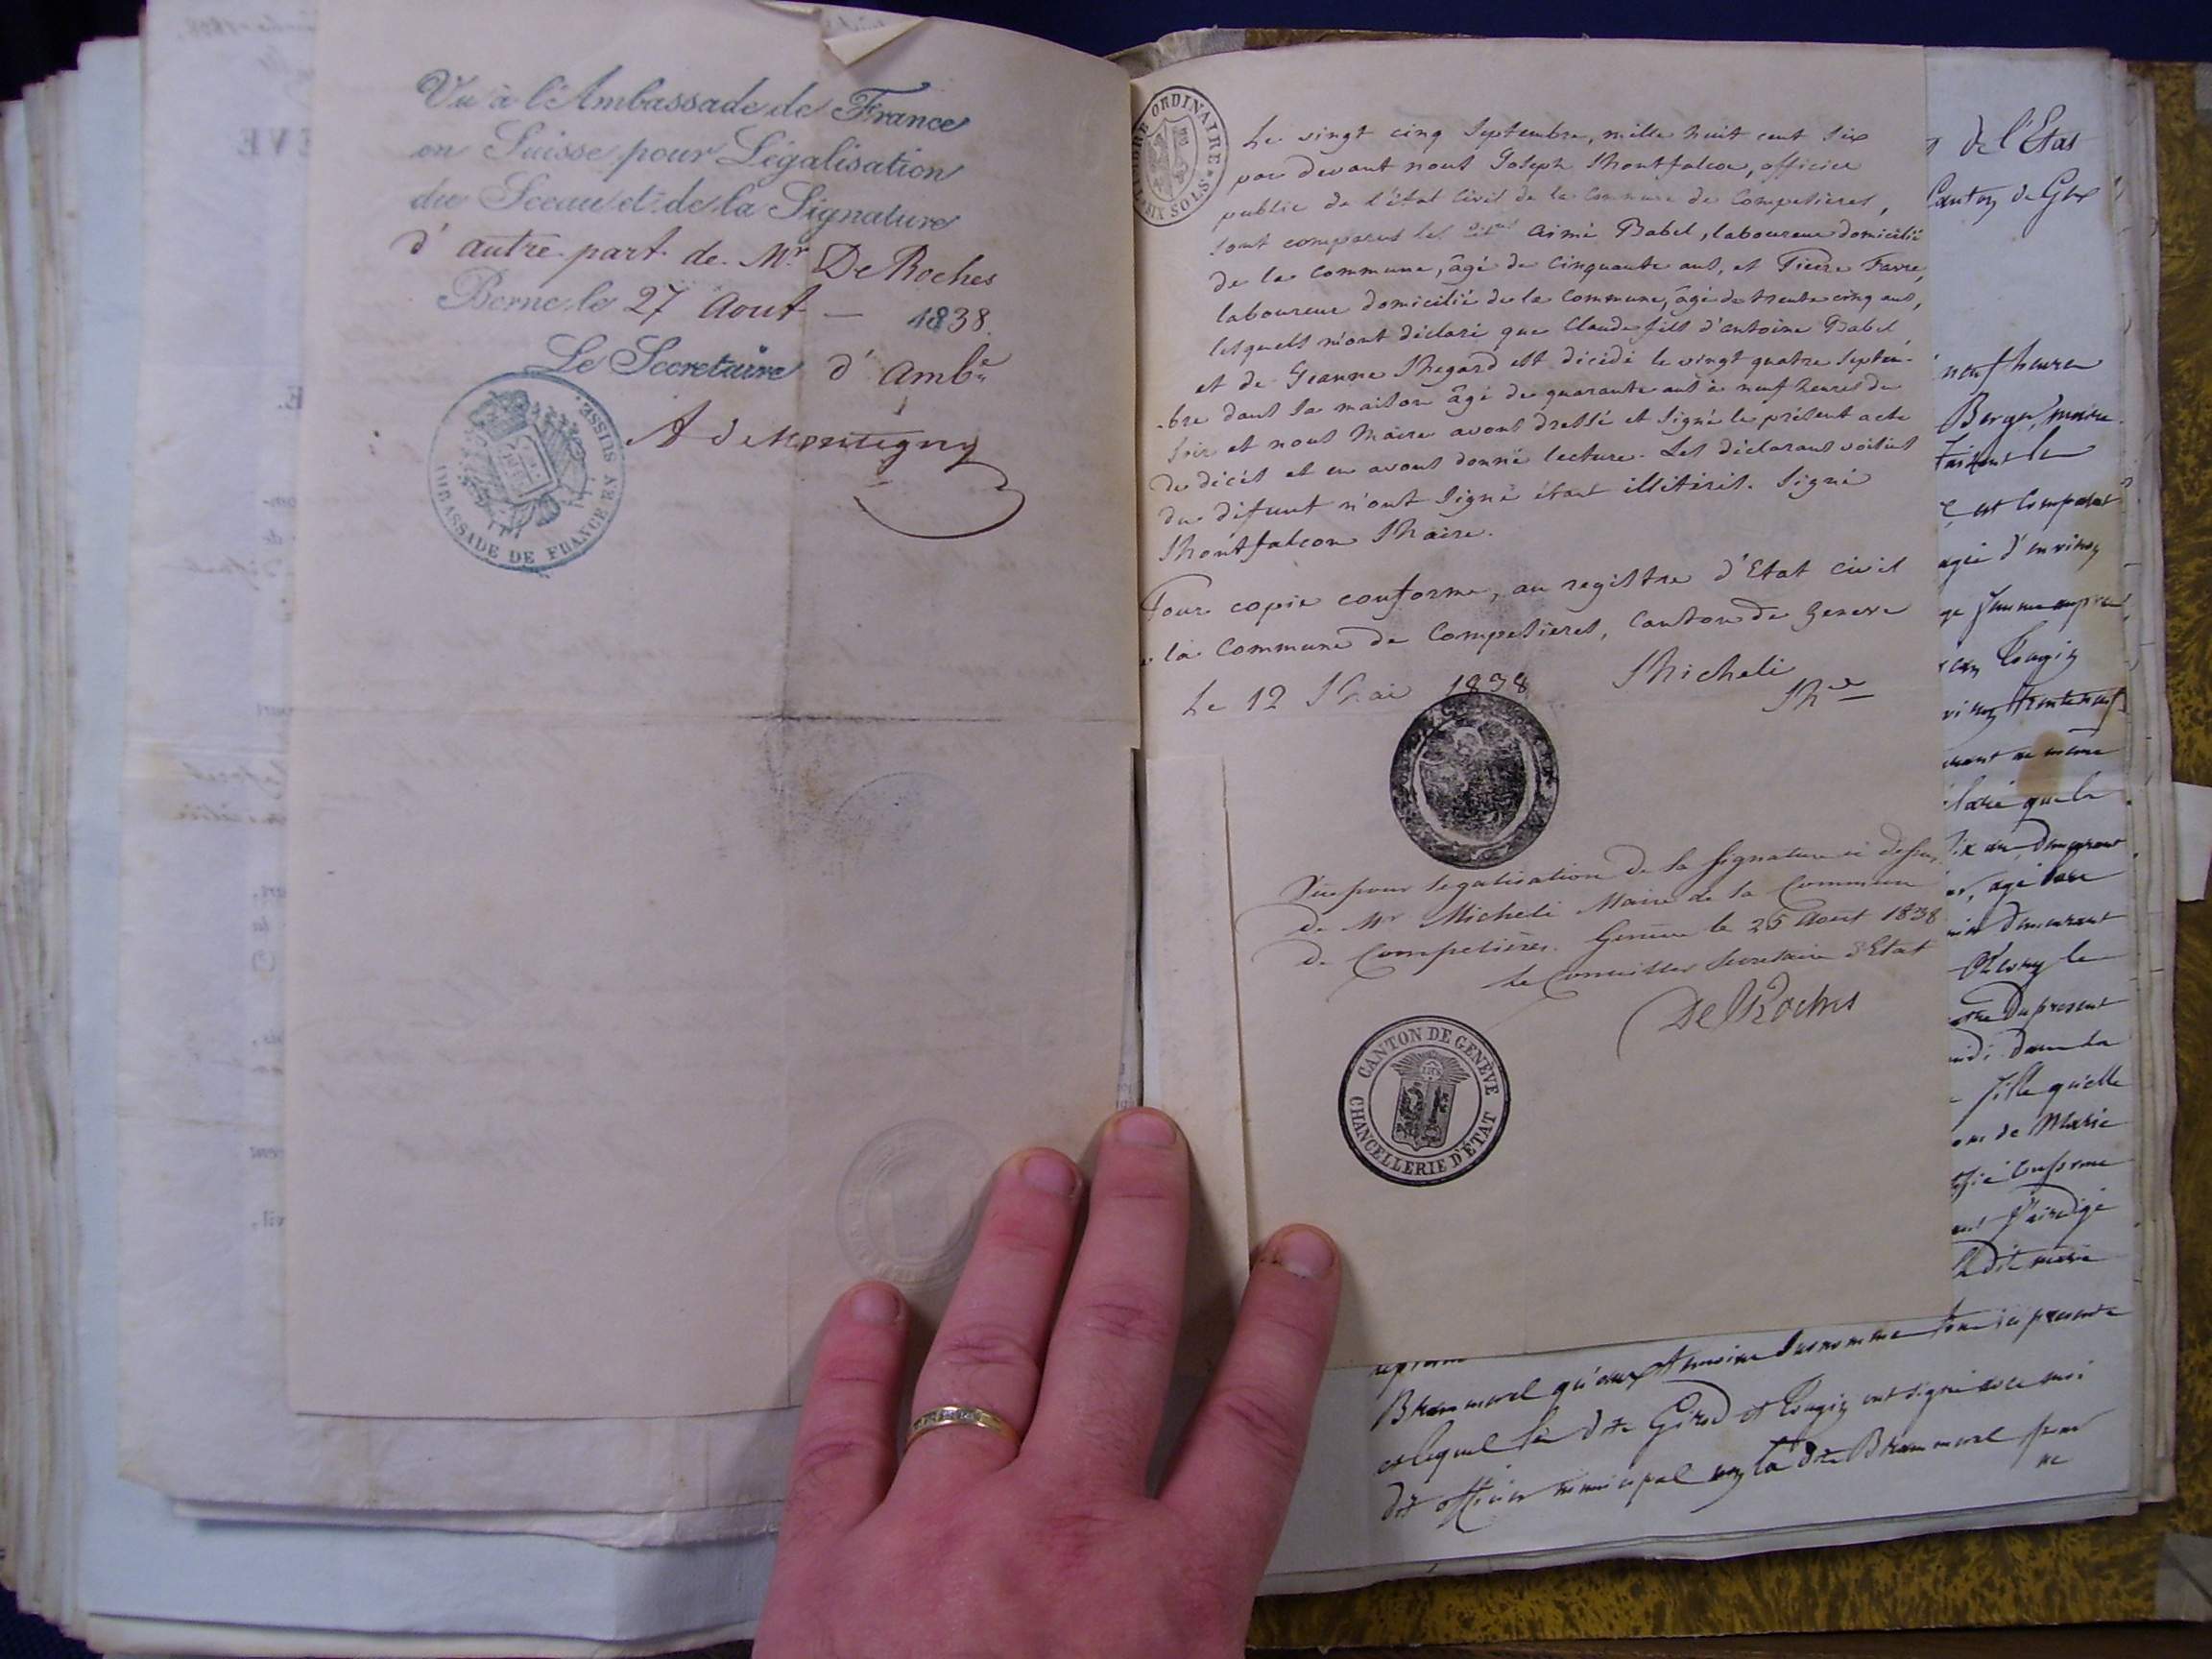 Vu à l'Ambassade de France
en Suisse pour Légalisation
du Sceau et de la Signature
d'autre part de Mr De Roches
Berne le 27 Aout — 1838.
Le Secretaire d'Ambe
A de Montigny
AMBASSADE DE FRANCE EN SUISSE.
TIMBRE ORDINAIRE
SIX SOLS
Le vingt cinq Septembre, mille huit cent Six
par devant nous Joseph Montfalcon, officier
public de l'état Civil de la Commune de Compesieres,
sont comparus les Aimé Babel, laboureur domicilié
de la Commune, âgé de Cinquante ans, et Pierre Favre,
laboureur domicilié de la Commune, âgé de trente cinq ans,
lesquels m'ont déclaré que Claude fils d'antoine Babel
et de Jeanne Megard est décédé le vingt quatre Septem-
-bre dans sa maison âgé de quarante ans à neuf heures du
soir et nous Maire avons dressé et Signé le présent acte
de décés et en avons donné lecture. Les déclarans voisins
du défunt n'ont Signé étant illitirés. Signé
Montfalcon Maire.
Pour copie conforme, au registre d'Etat civil
de la Commune de Compesieres, Canton de Geneve
Le 12 Mai 1838 Micheli
Mre
Vu pour legalisation de la signature ci dessus
de Mr Micheli Maire de la Commune
de Compesières. Genève le 25 Aout 1838
Le Conseiller Secretaire d'Etat
De Roches
CANTON DE GENÈVE
CHANCELLERIE D'ÉTAT
de l'Etat
Canton de Gex
neuf heures
Berger, maire
est comparut
agée d'environ
de même
claré que la
agé
demeurant
du present
dans la
fille qu'elle
nom de Marie
copie conforme
redigé
ledit maire
presente
Brammerel
et lequel Girod et Tougin ont signé avec moi
dit officier municipal non la dte Brammerel pour
ne